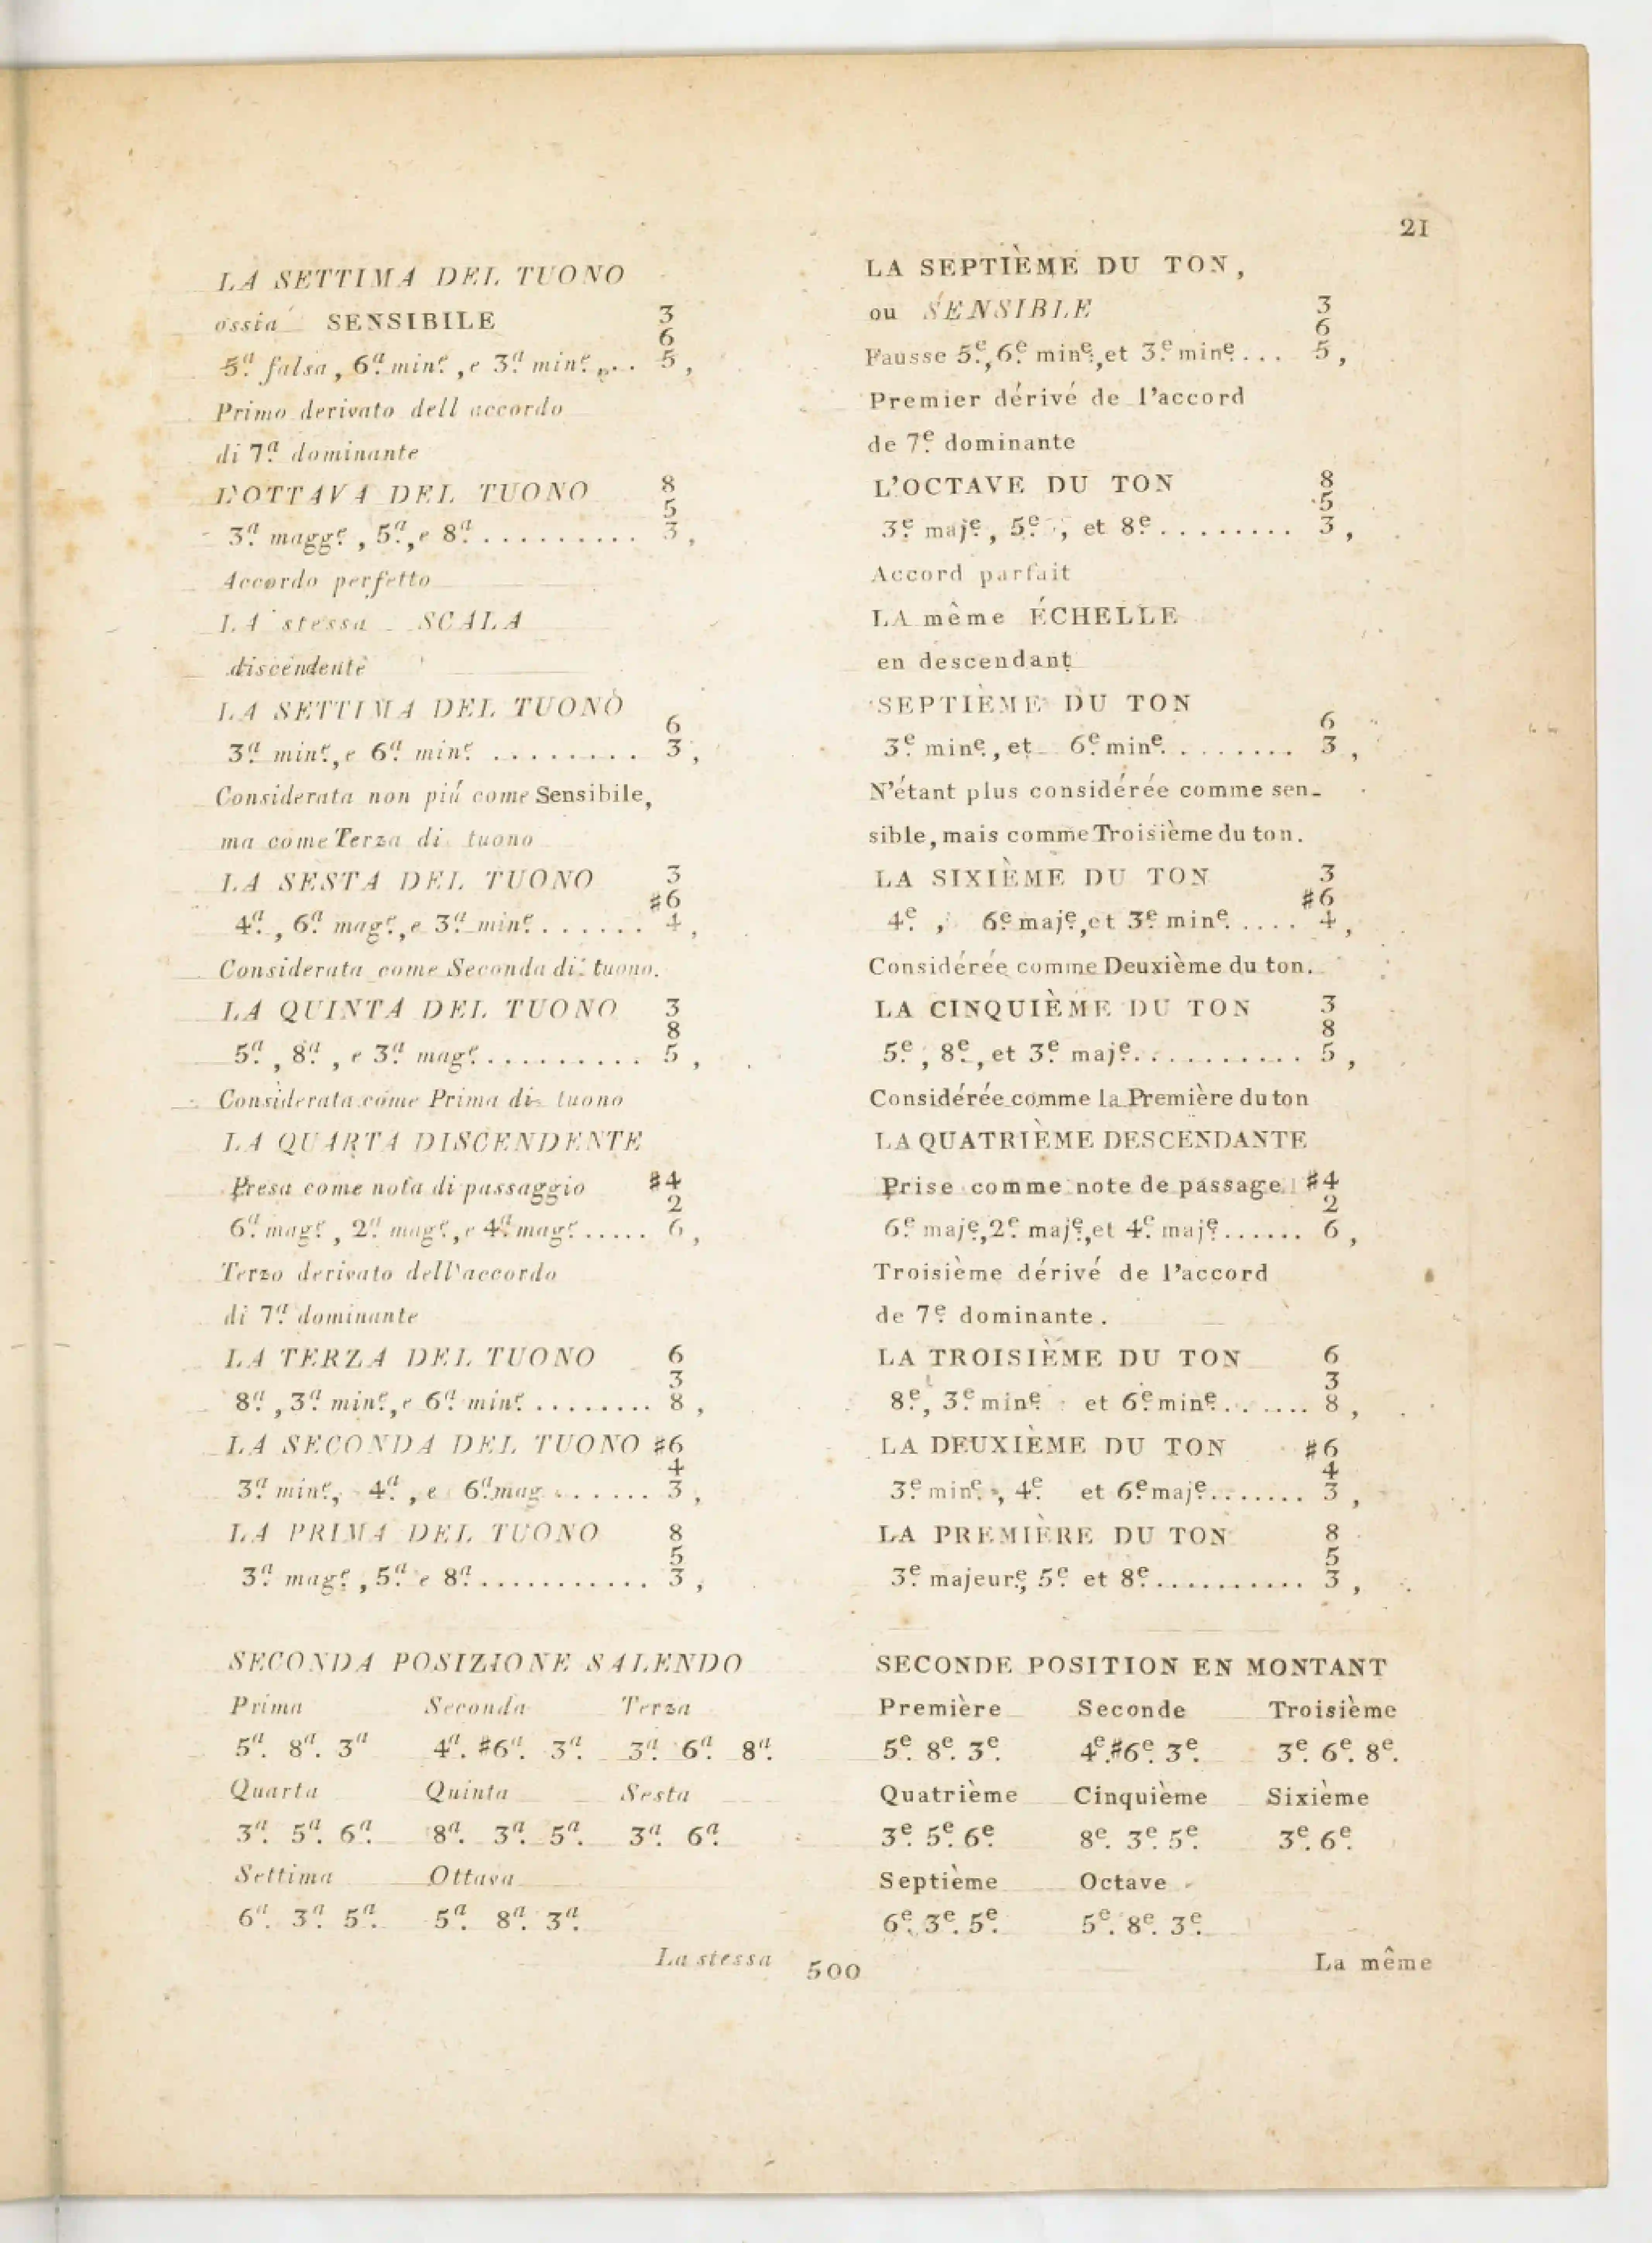 21
LA SETTIMA DEL TUONO
ossia SENSIBILE 3
6
5.ª falsa, 6.ª min.e, e 3.ª min.e ... 5,
Primo derivato dell accordo
di 7.ª dominante
L'OTTAVA DEL TUONO 8
5
3.ª magg.e, 5.ª, e 8.ª .......... 3,
Accordo perfetto
LA stessa SCALA
discendente
LA SETTIMA DEL TUONO
6
3.ª min.e, e 6.ª min.e ........ 3,
Considerata non piú come Sensibile,
ma come Terza di tuono
LA SESTA DEL TUONO 3
♯6
4.ª, 6.ª mag.e, e 3.ª min.e ...... 4,
Considerata come Seconda di tuono.
LA QUINTA DEL TUONO 3
8
5.ª, 8.ª, e 3.ª mag.e ......... 5,
Considerata come Prima di tuono
LA QUARTA DISCENDENTE
Presa come nota di passaggio ♯4
2
6.ª mag.e, 2.ª mag.e, e 4.ª mag.e ..... 6,
Terzo derivato dell'accordo
di 7.ª dominante
LA TERZA DEL TUONO 6
3
8.ª, 3.ª min.e, e 6.ª min.e ........ 8,
LA SECONDA DEL TUONO ♯6
4
3.ª min.e, 4.ª, e 6.ª mag. ...... 3,
LA PRIMA DEL TUONO 8
5
3.ª mag.e, 5.ª e 8.ª ........... 3,
SECONDA POSIZIONE SALENDO
Prima Seconda Terza
5.ª 8.ª 3.ª 4.ª ♯6.ª 3.ª 3.ª 6.ª 8.ª
Quarta Quinta Sesta
3.ª 5.ª 6.ª 8.ª 3.ª 5.ª 3.ª 6.ª
Settima Ottava
6.ª 3.ª 5.ª 5.ª 8.ª 3.ª
La stessa
LA SEPTIÈME DU TON,
ou SENSIBLE 3
6
Fausse 5.e, 6.e min.e, et 3.e min.e ... 5,
Premier dérivé de l'accord
de 7.e dominante
L'OCTAVE DU TON 8
5
3.e maj.e, 5.e, et 8.e ........ 3,
Accord parfait
LA même ÉCHELLE
en descendant
SEPTIÈME DU TON
6
3.e min.e, et 6.e min.e ........ 3,
N'étant plus considérée comme sen-
sible, mais comme Troisième du ton.
LA SIXIÈME DU TON 3
♯6
4.e, 6.e maj.e, et 3.e min.e .... 4,
Considérée comme Deuxième du ton.
LA CINQUIÈME DU TON 3
8
5.e, 8.e, et 3.e maj.e .......... 5,
Considérée comme la Première du ton
LA QUATRIÈME DESCENDANTE
Prise comme note de passage ♯4
2
6.e maj.e, 2.e maj.e, et 4.e maj.e ...... 6,
Troisième dérivé de l'accord
de 7.e dominante.
LA TROISIÈME DU TON 6
3
8.e, 3.e min.e et 6.e min.e ...... 8,
LA DEUXIÈME DU TON ♯6
4
3.e min.e, 4.e et 6.e maj.e ....... 3,
LA PREMIÈRE DU TON 8
5
3.e majeur.e, 5.e et 8.e .......... 3,
SECONDE POSITION EN MONTANT
Première Seconde Troisième
5.e 8.e 3.e 4.e ♯6.e 3.e 3.e 6.e 8.e
Quatrième Cinquième Sixième
3.e 5.e 6.e 8.e 3.e 5.e 3.e 6.e
Septième Octave
6.e 3.e 5.e 5.e 8.e 3.e
La même
500